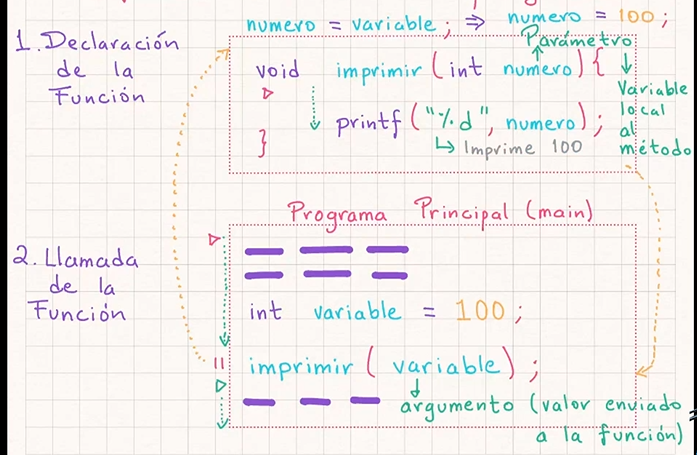 numero = variable; ⇒ numero = 100;
1. Declaración
de la
Función
Parámetro
void imprimir (int numero) {
Variable
local
al
método
printf ("%d", numero);
↳ Imprime 100
}
Programa Principal (main)
2. Llamada
de la
Función
int variable = 100;
imprimir (variable);
argumento (valor enviado
a la función)